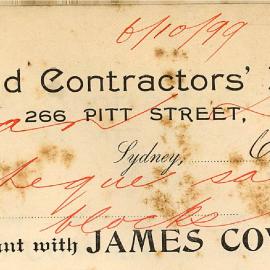 6/10/99
d Contractors'
266 PITT STREET,
Sydney,
cheques
blocks
nt with JAMES CO